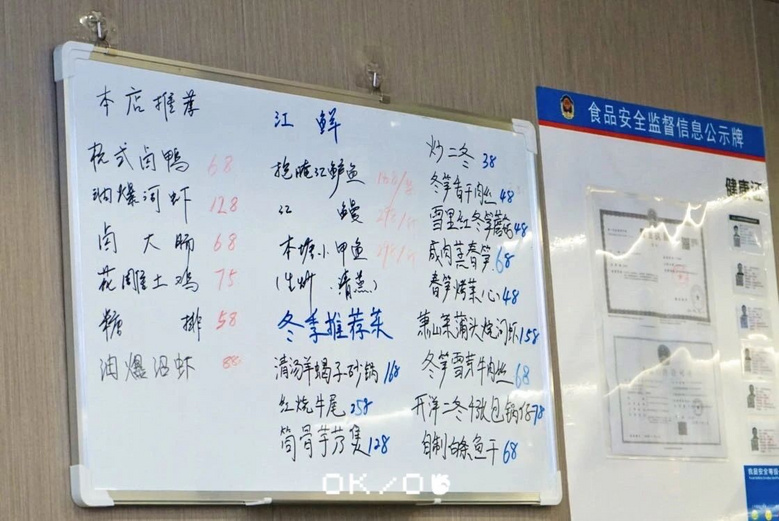 本店推荐
杭式卤鸭 68
油爆河虾 128
卤大肠 68
花雕土鸡 75
糖排 58
油爆沼虾 88
江鲜
抱腌江鲈鱼
江鳗
本塘小甲鱼
(生炒.清蒸)
冬季推荐菜
清汤羊蝎子砂锅 168
红烧牛尾 258
筒骨芋艿煲 128
炒二冬 38
冬笋香干肉丝 48
雪里红冬笋蘑菇 48
咸肉蒸春笋 68
春笋烤菜心 48
萧山菜蒲头烧河虾 158
冬笋雪菜牛肉丝 68
开洋二冬千张包锅仔 78
自制白条鱼干 68
OK/O
食品安全监督信息公示牌
健康证